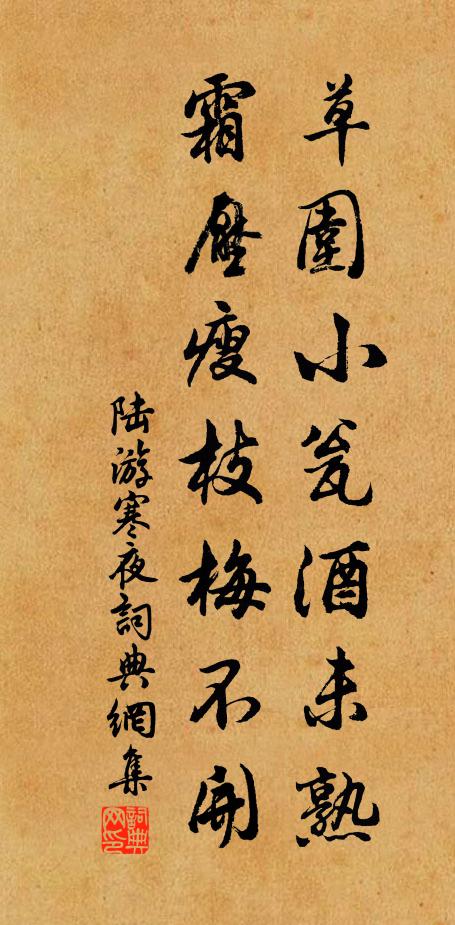 草圍小瓮酒未熟
霜壓瘦枝梅不開
陆游寒夜詞典網集
詞典網印